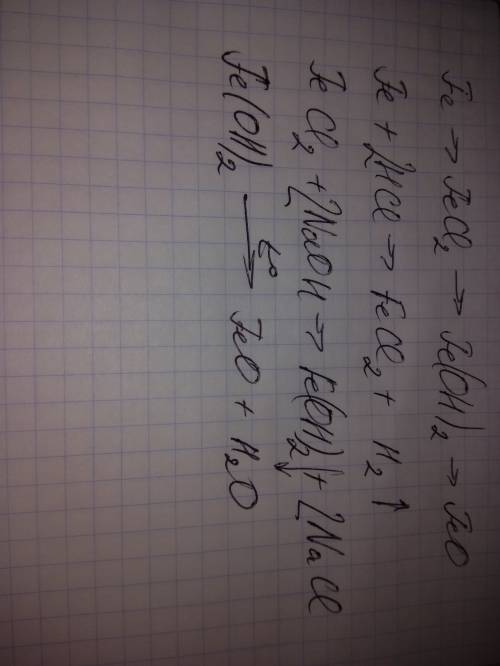 Fe → FeCl₂ → Fe(OH)₂ → FeO
Fe + 2HCl → FeCl₂ + H₂↑
FeCl₂ + 2NaOH → Fe(OH)₂↓ + 2NaCl
Fe(OH)₂ →t° FeO + H₂O